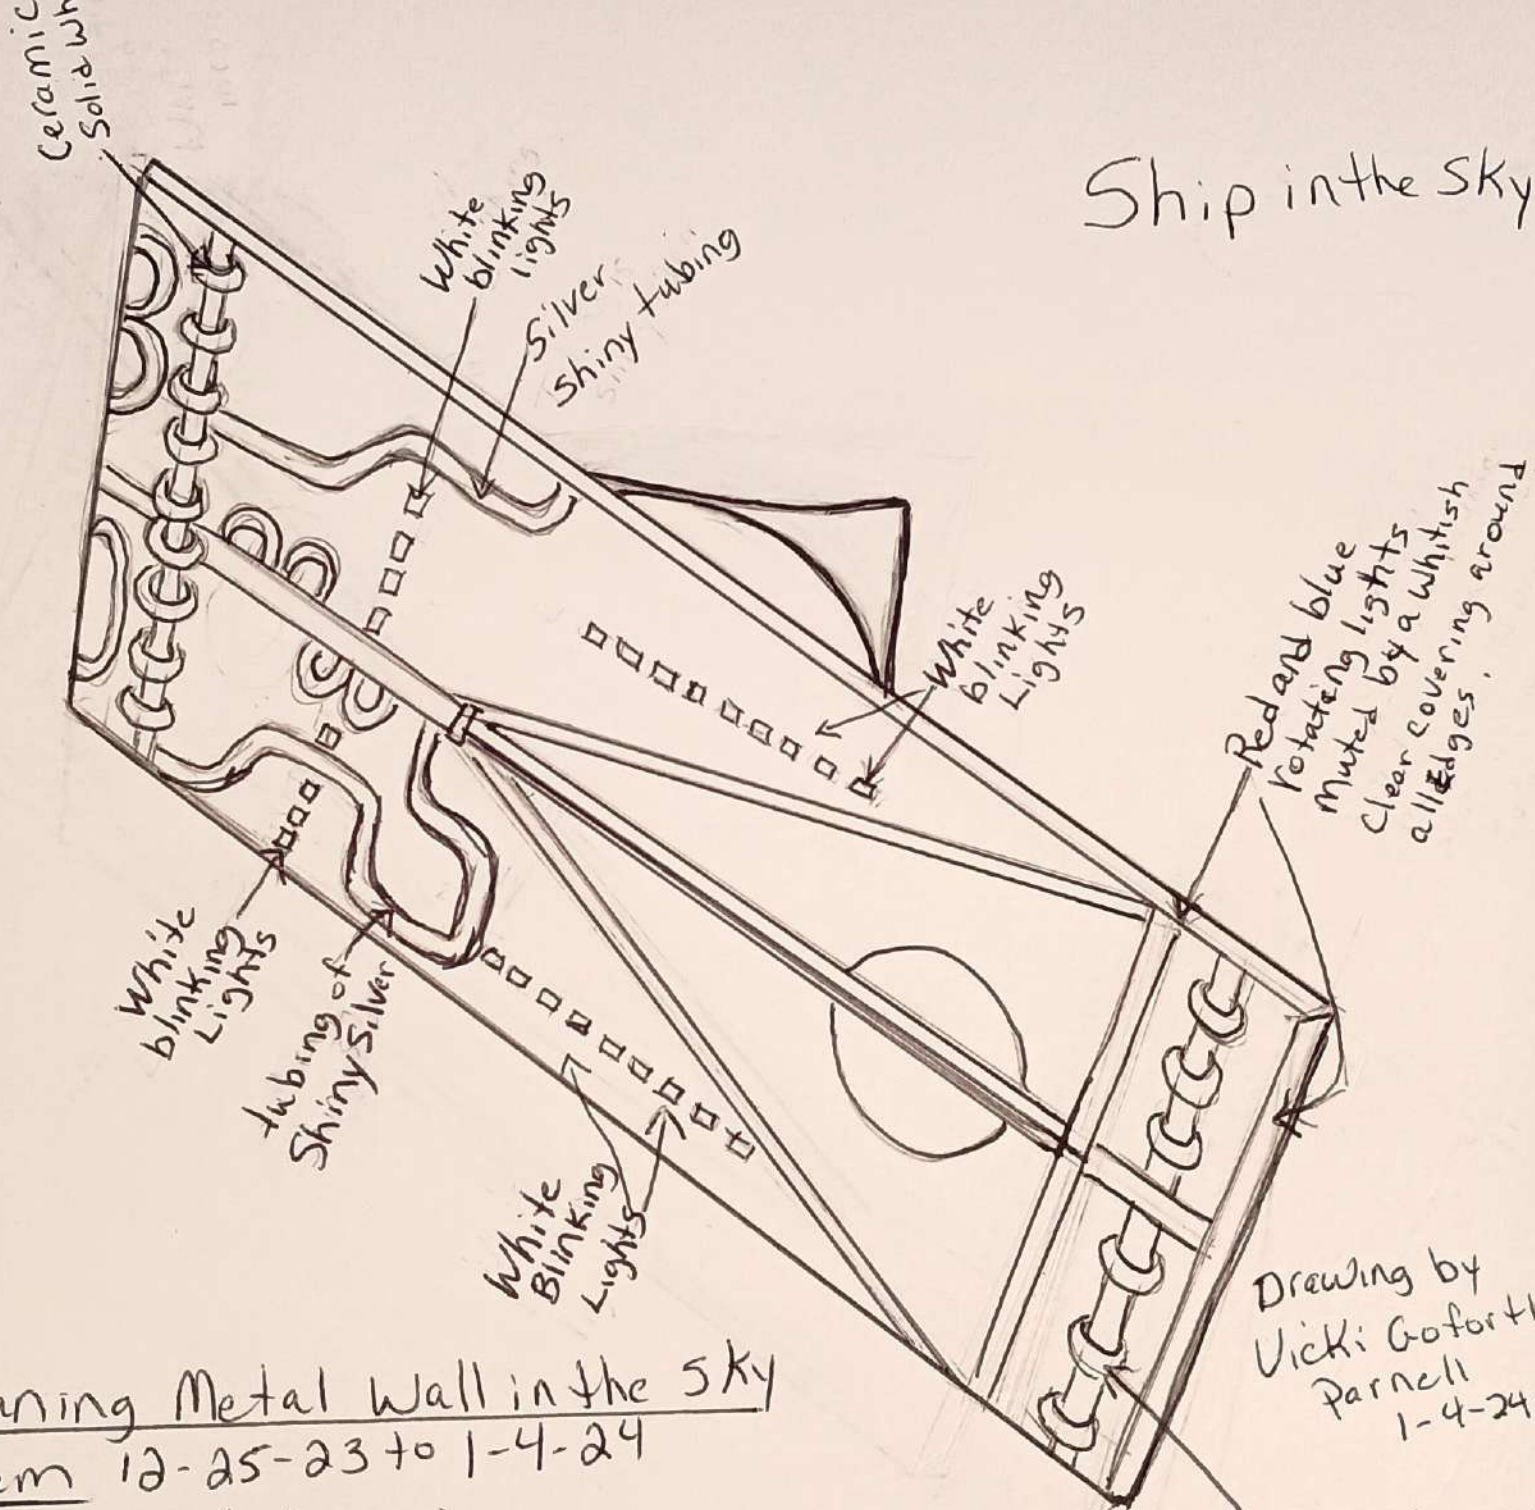 Ceramic
Solid
Ship in the Sky
White
blinking
lights
Silver
Shiny tubing
White
blinking
Lights
Red and blue
rotating lights
Muted by a whitish
Clear covering around
all Edges.
White
blinking
Lights
tubing of
Shiny Silver
White
Blinking
Lights
Drawing by
Vicki Goforth
Parnell
1-4-24
Metal Wall in the Sky
12-25-23 to 1-4-24